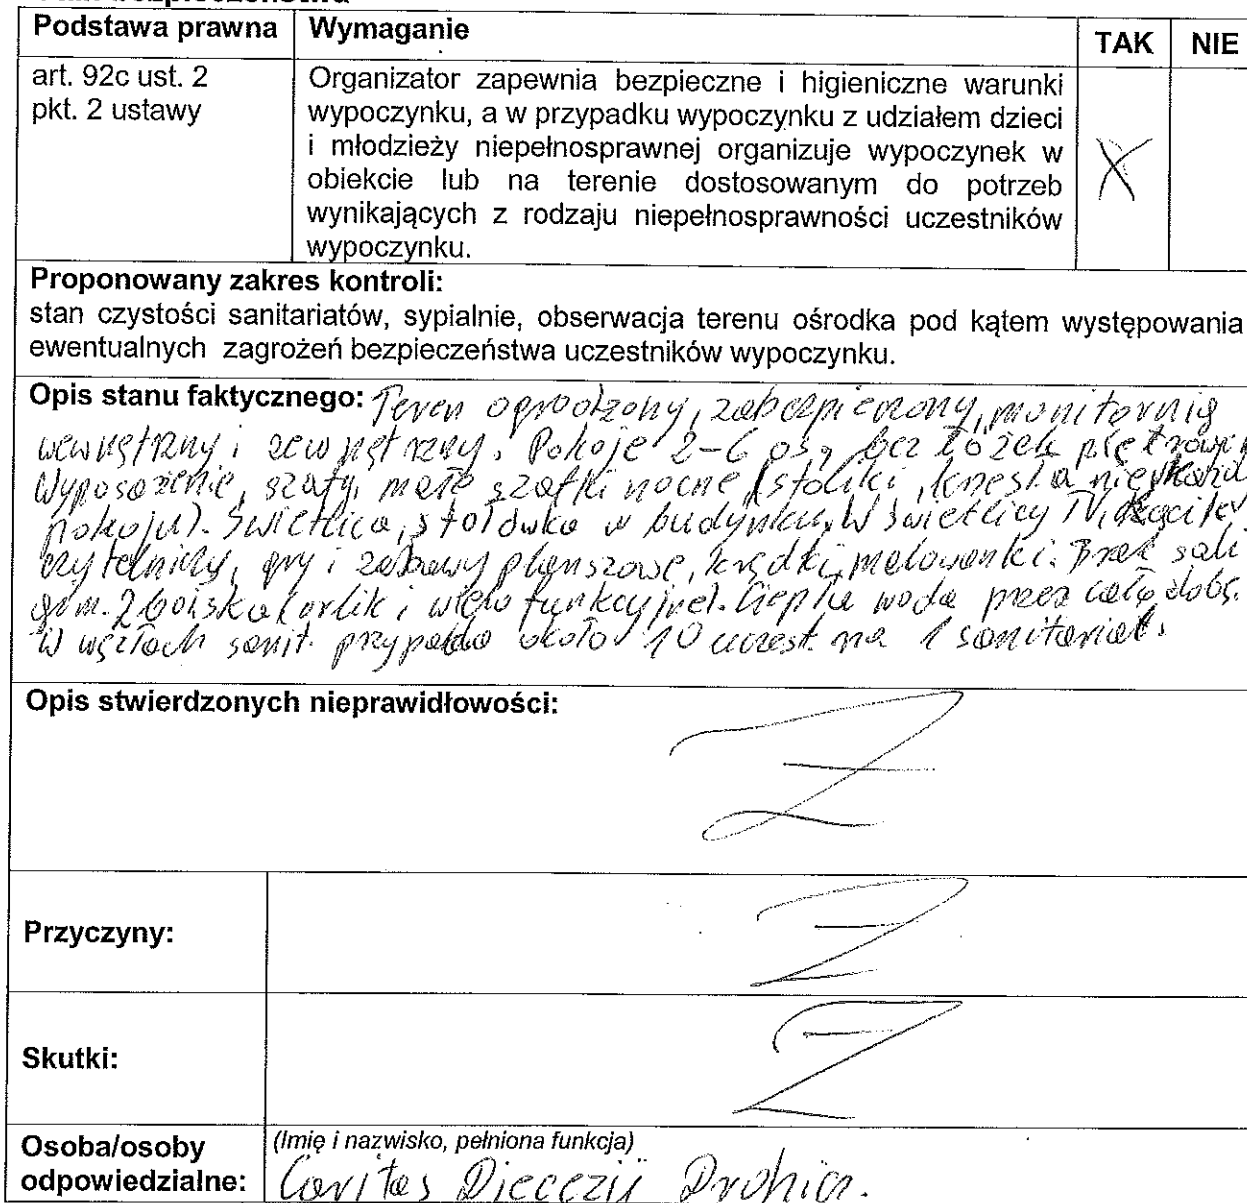 Podstawa prawna Wymaganie TAK NIE
art. 92c ust. 2
pkt. 2 ustawy
Organizator zapewnia bezpieczne i higieniczne warunki
wypoczynku, a w przypadku wypoczynku z udziałem dzieci
i młodzieży niepełnosprawnej organizuje wypoczynek w
obiekcie lub na terenie dostosowanym do potrzeb
wynikających z rodzaju niepełnosprawności uczestników
wypoczynku.
X
Proponowany zakres kontroli:
stan czystości sanitariatów, sypialnie, obserwacja terenu ośrodka pod kątem występowania
ewentualnych zagrożeń bezpieczeństwa uczestników wypoczynku.
Opis stanu faktycznego: Teren ogrodzony, zabezpieczony, monitoring
wewnętrzny i zewnętrzny. Pokoje 2-6 os, bez łóżek piętrowych
Wyposażenie, szafy, małe szafki nocne (stoliki, krzesła
pokoju). Świetlica, stołówka w budynku. W świetlicy TV,
gry i zabawy planszowe, kredki, malowanki. Brak sali
gim. 2 boiska (orlik i wielofunkcyjne). Ciepła woda przez całą dobę.
W węzłach sanit. przypada około 10 uczest. na 1 sanitariat.
Opis stwierdzonych nieprawidłowości:
Przyczyny:
Skutki:
Osoba/osoby
odpowiedzialne:
(Imię i nazwisko, pełniona funkcja)
Caritas Diecezji Drohicz.